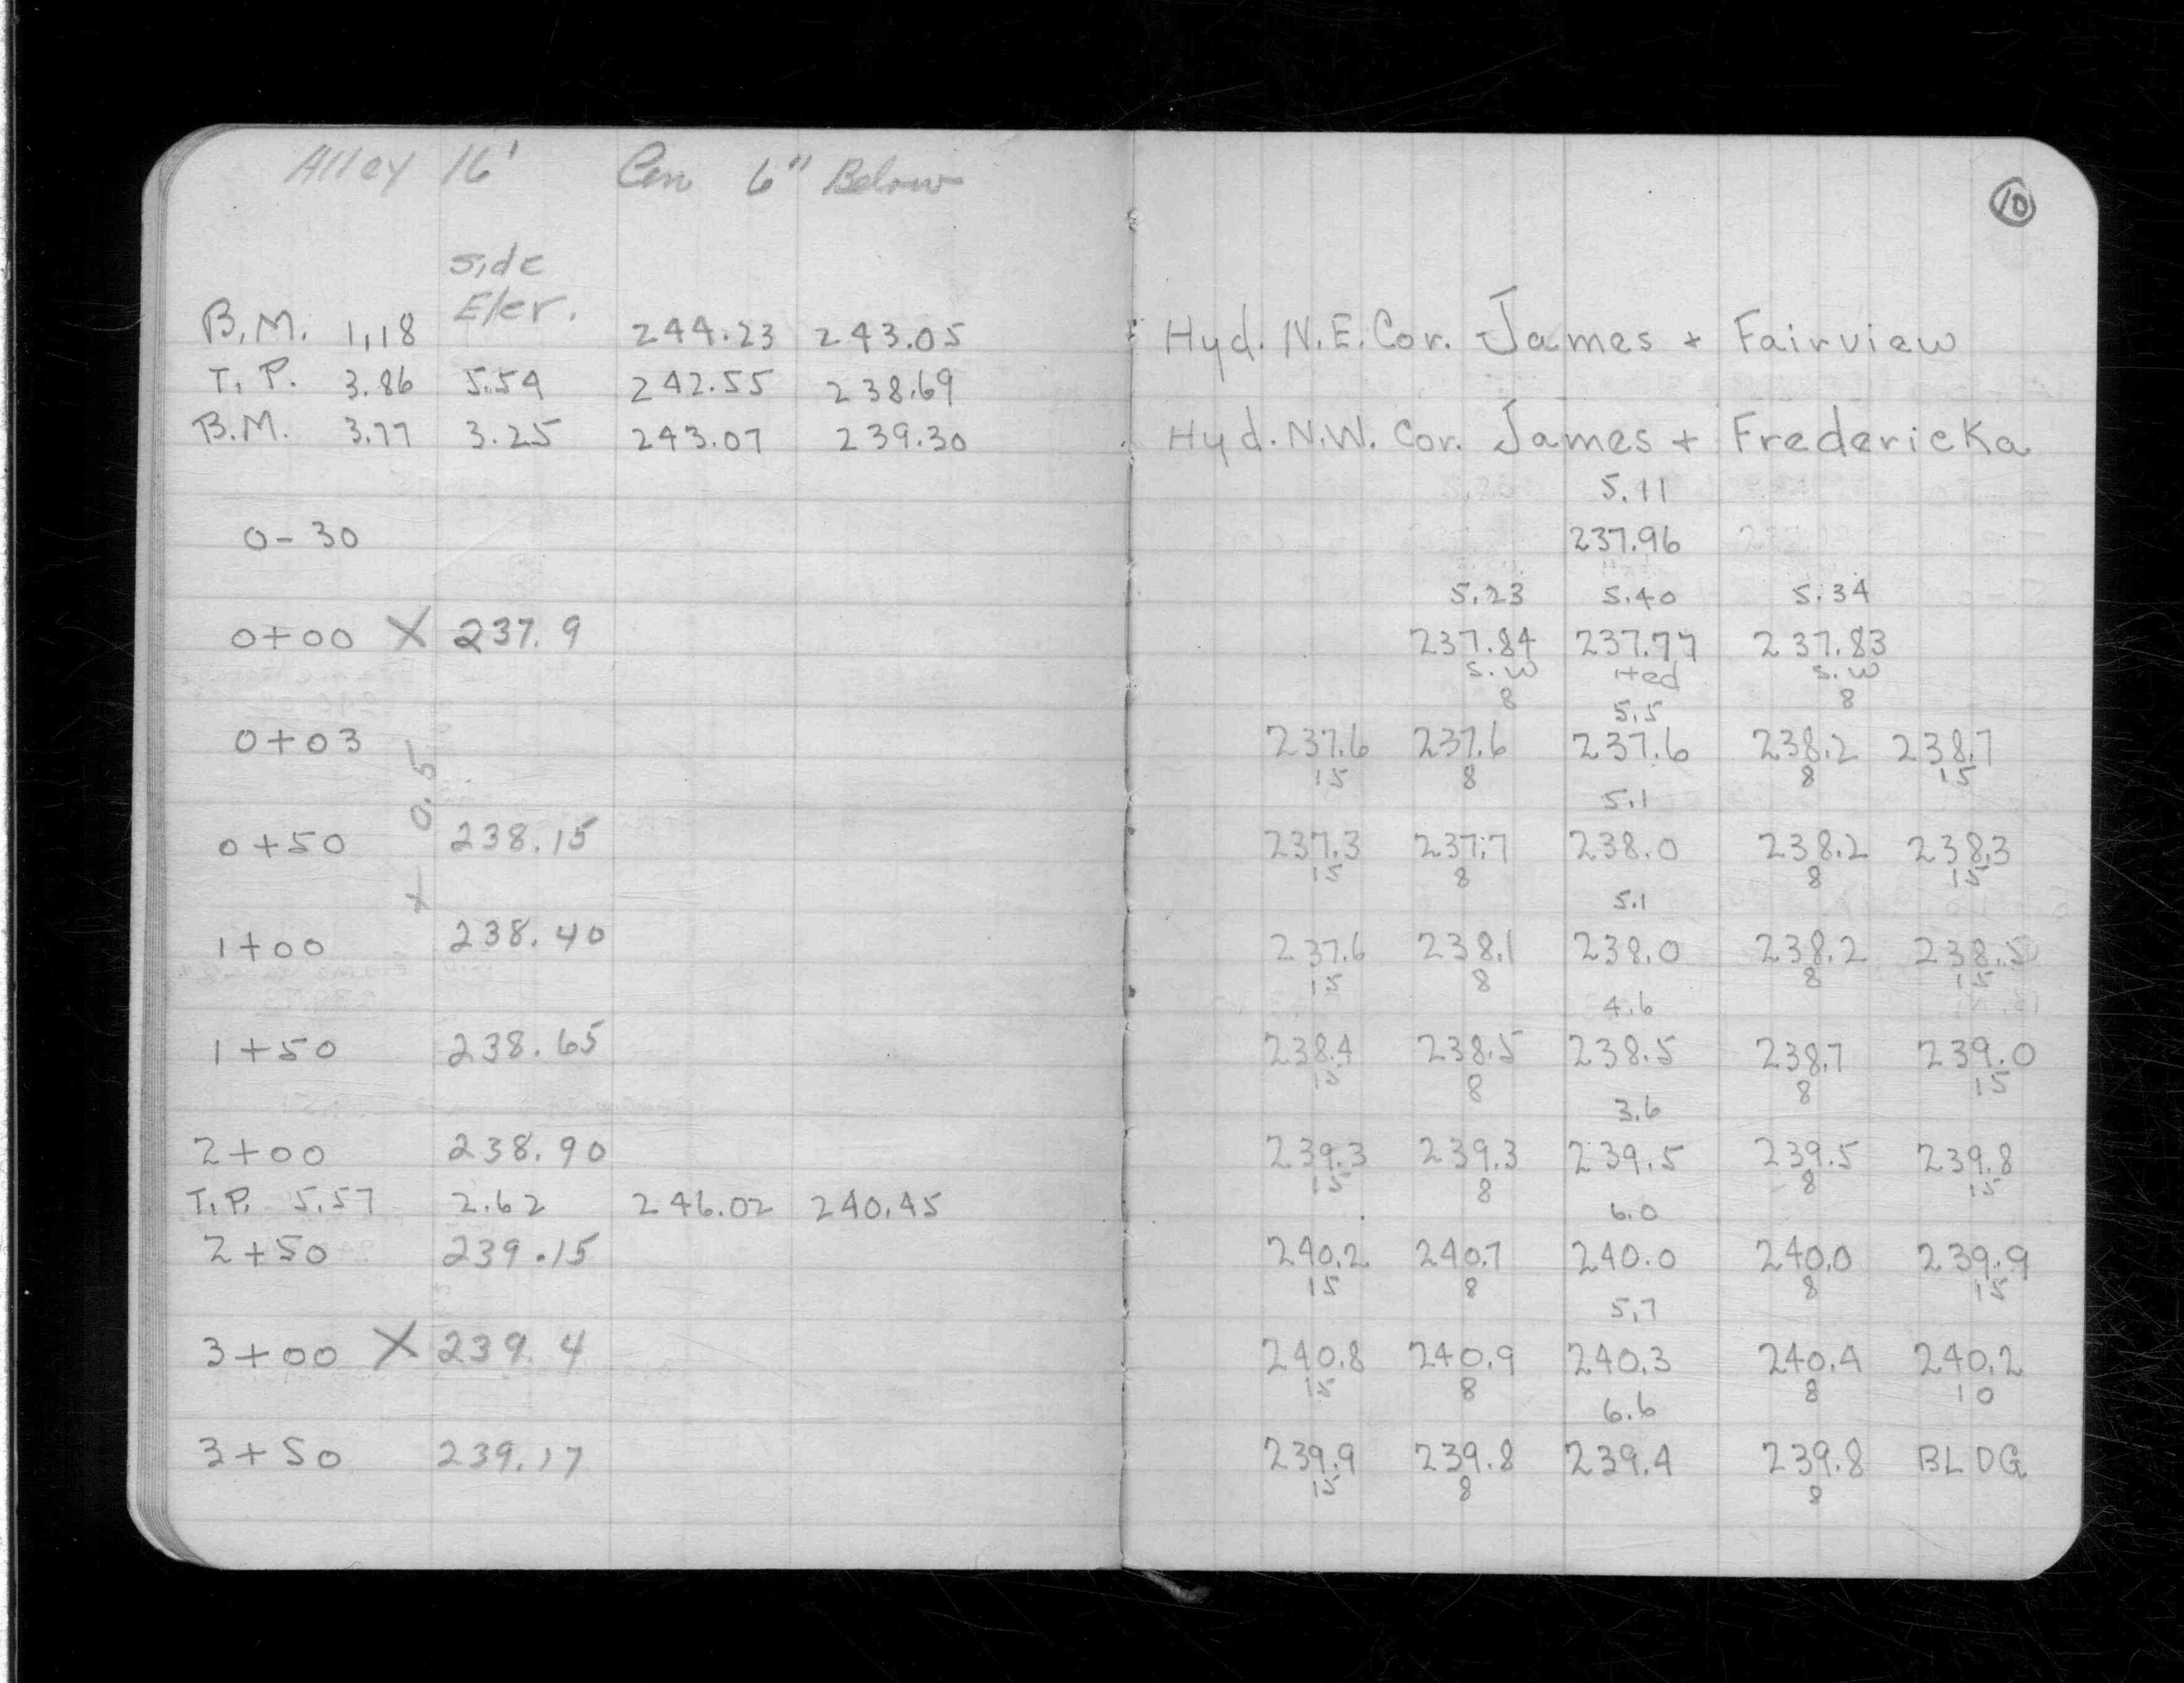 Alley 16' Cen 6" Below
10
side
Elev.
B.M. 1.18 244.23 243.05 Hyd. N.E. Cor. James + Fairview
T.P. 3.86 5.54 242.55 238.69
B.M. 3.77 3.25 243.07 239.30 Hyd. N.W. Cor. James + Fredericka
5.11
0-30 237.96
5.23 5.40 5.34
0+00 X 237.9 237.84 237.77 237.83
S.W Hed S.W
8 8
5.5
0+03 237.6 237.6 237.6 238.2 238.7
15 8 8 15
+ 0.5
5.1
0+50 238.15 237.3 237.7 238.0 238.2 238.3
15 8 8 15
5.1
1+00 238.40 237.6 238.1 238.0 238.2 238.5
15 8 8 15
4.6
1+50 238.65 238.4 238.5 238.5 238.7 239.0
15 8 8 15
3.6
2+00 238.90 239.3 239.3 239.5 239.5 239.8
15 8 8 15
T.P. 5.57 2.62 246.02 240.45 6.0
2+50 239.15 240.2 240.7 240.0 240.0 239.9
15 8 8 15
5.7
3+00 X 239.4 240.8 240.9 240.3 240.4 240.2
15 8 8 10
6.6
3+50 239.17 239.9 239.8 239.4 239.8 BLDG
15 8 8